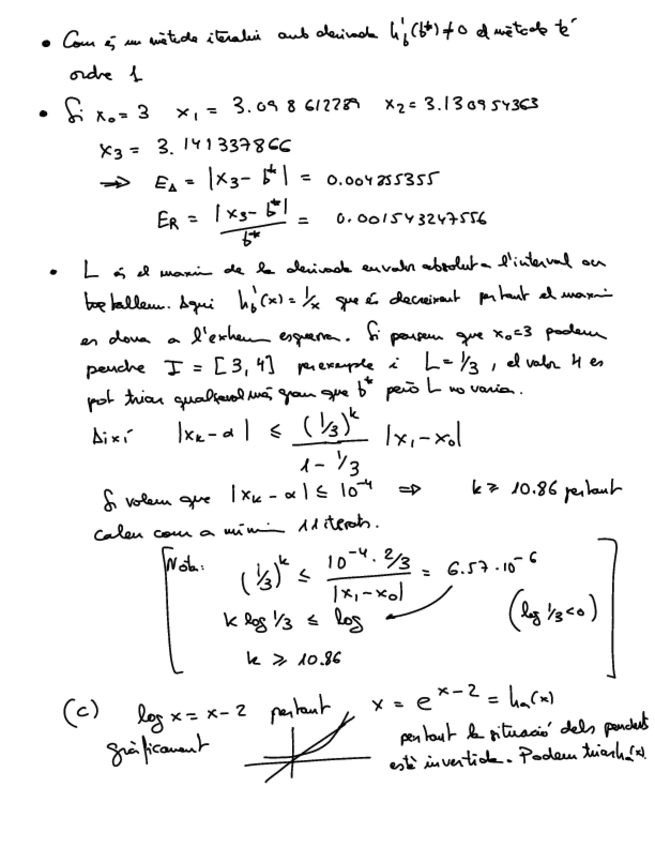 • Com és un mètode iteratiu amb derivada h_b'(b*) ≠ 0 el mètode té
ordre 1
• Si x₀ = 3 x₁ = 3.098612289 x₂ = 3.130954363
x₃ = 3.141337866
⇒ E_A = |x₃ - b*| = 0.004855355
E_R = |x₃ - b*| / b* = 0.001543247556
• L és el maxim de la derivada en valor absolut a l'interval on
treballem. Aqui h_b'(x) = 1/x que és decreixent per tant el maxim
es dona a l'extrem esquerra. Si posem que x₀=3 podem
pendre I = [3, 4] per exemple i L = 1/3, el valor 4 es
pot triar qualsevol més gran que b* però L no varia.
Així |x_k - α| ≤ (1/3)^k / (1 - 1/3) |x₁ - x₀|
Si volem que |x_k - α| ≤ 10⁻⁴ ⇒ k ≥ 10.86 per tant
calen com a mínim 11 iterats.
[Nota: (1/3)^k ≤ 10⁻⁴ · 2/3 / |x₁ - x₀| = 6.57 · 10⁻⁶
k log 1/3 ≤ log (log 1/3 < 0)
k ≥ 10.86]
(c) log x = x - 2 per tant x = e^(x-2) = h_a(x)
gràficament per tant la situació dels pendents
està invertida. Podem triar h_a(x).